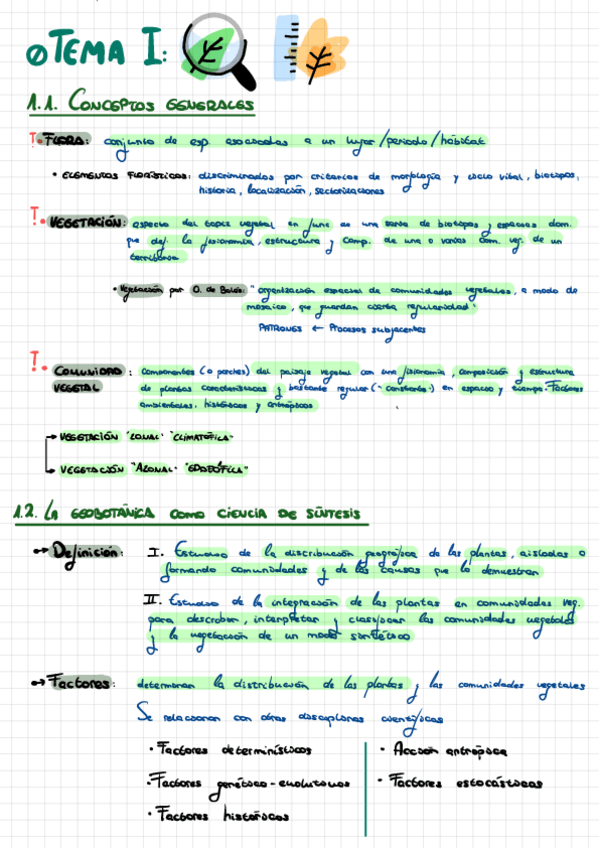 TEMA I:
1.1. CONCEPTOS GENERALES
FLORA: conjunto de esp. asociadas a un lugar/periodo/hábitat
• ELEMENTOS FLORÍSTICOS: discriminados por criterios de morfología y ciclo vital, biotopos,
historia, localización, sectorizaciones
VEGETACIÓN: aspecto del tapiz vegetal en func de una serie de biotopos y especies dom.
que def. la fisionomía, estructura y comp. de una o varias com. veg. de un
territorio
• Vegetación por O. de Bolós: "organización espacial de comunidades vegetales, a modo de
mosaico, que guardan cierta regularidad"
PATRONES ← Procesos subyacentes
COMUNIDAD : componentes (o partes) del paisaje vegetal con una fisionomía, composición y estructura
VEGETAL de plantas características y bastante regular (~constante) en espacio y tiempo. Factores
ambientales, históricos y antrópicos
→ VEGETACIÓN "ZONAL" "CLIMATÓFILA"
→ VEGETACIÓN "AZONAL" "EDAFÓFILA"
1.2. LA GEOBOTÁNICA COMO CIENCIA DE SÍNTESIS
→ Definición: I. Estudio de la distribución geográfica de las plantas, aisladas o
formando comunidades y de las causas que lo demuestran
II. Estudio de la integración de las plantas en comunidades veg.
para describir, interpretar y clasificar las comunidades vegetales
y la vegetación de un modo sintético
→ Factores: determinan la distribución de las plantas y las comunidades vegetales
Se relacionan con otras disciplinas científicas
• Factores determinísticos
• Factores genético-evolutivos
• Factores históricos
• Acción antrópica
• Factores estocásticos